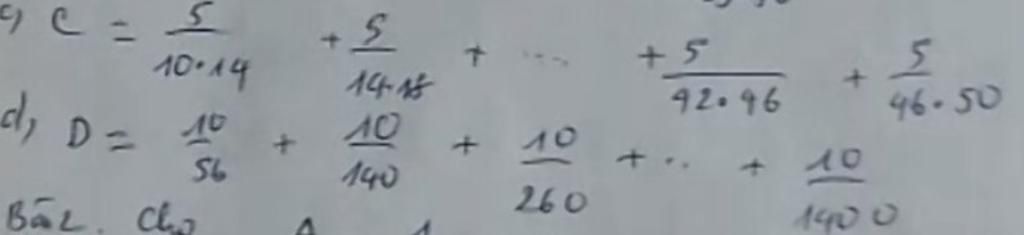 c, C = 5/10.14 + 5/14.18 + ... + 5/42.46 + 5/46.50
d, D = 10/56 + 10/140 + 10/260 + .. + 10/1400
Bài 2. Cho A 1